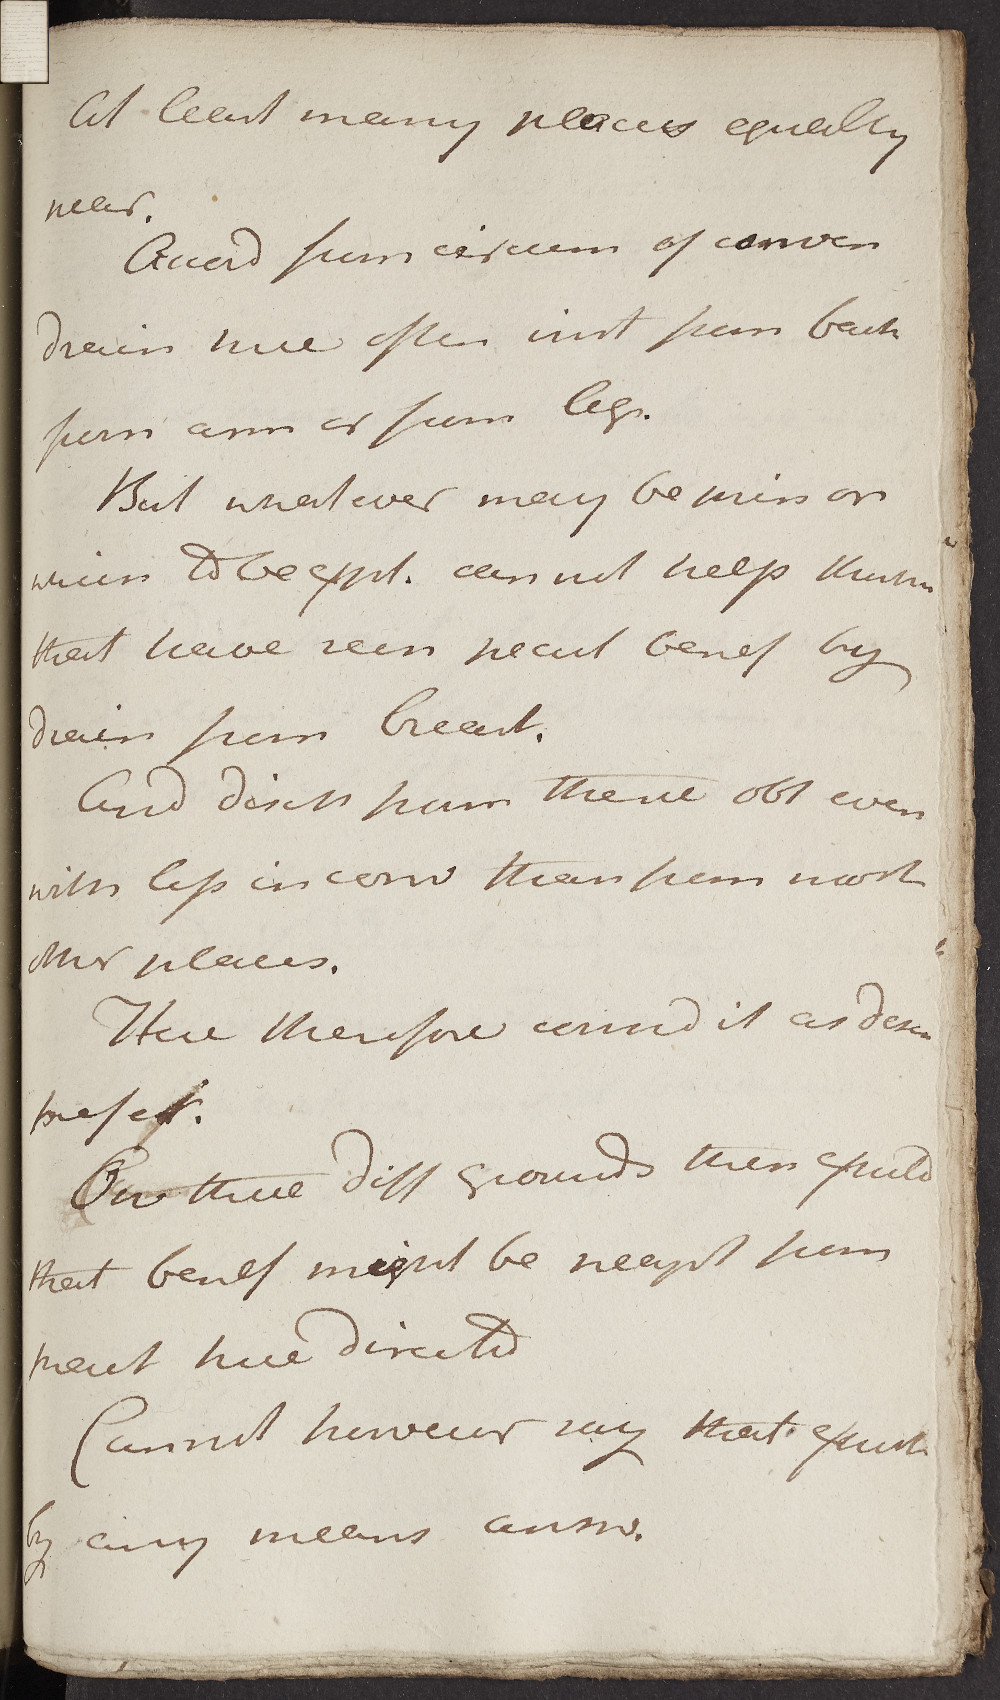 At least many places equally
near.
Accord from circum of conven
drain here often inst from back
from arm or from leg.
But whatever may be
to be expt. cannot help
that have seen great benef by
drain from breast.
And disch from these obt even
with less in conv than from most
other places.
Here therefore consid it as deser
prefer.
On these diff grounds then expected
that benef might be reapd from
pract here directed
Cannot however say that expect
by any means answ.